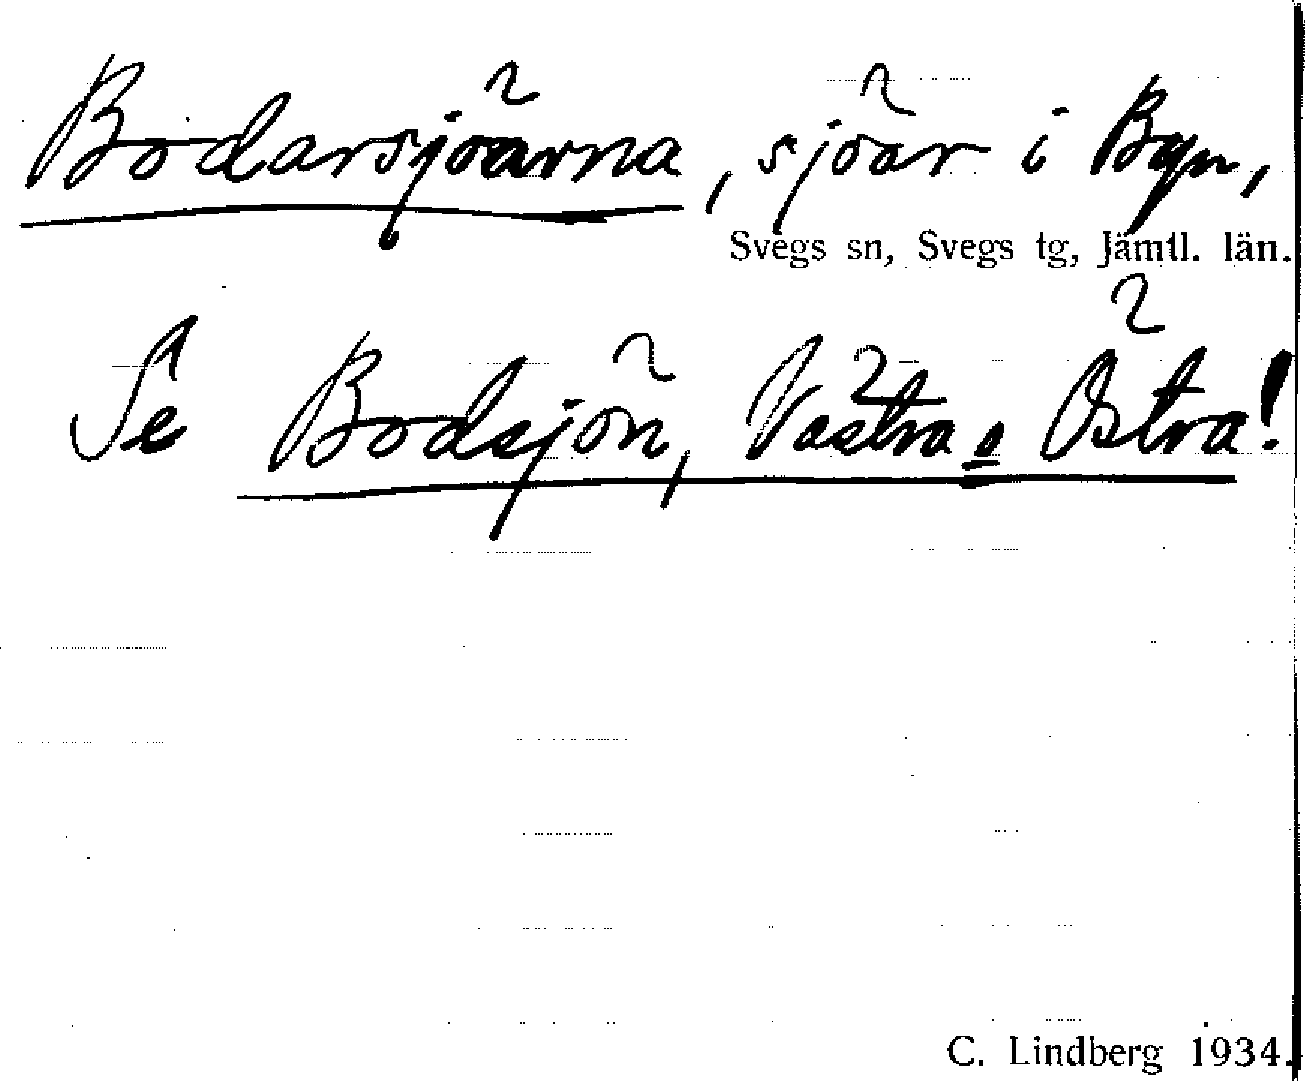 Bodarsjöarna, sjöar i Byn,
Svegs sn, Svegs tg, Jämtl. län.
Se Bodsjön, Västra o Östra!
C. Lindberg 1934.